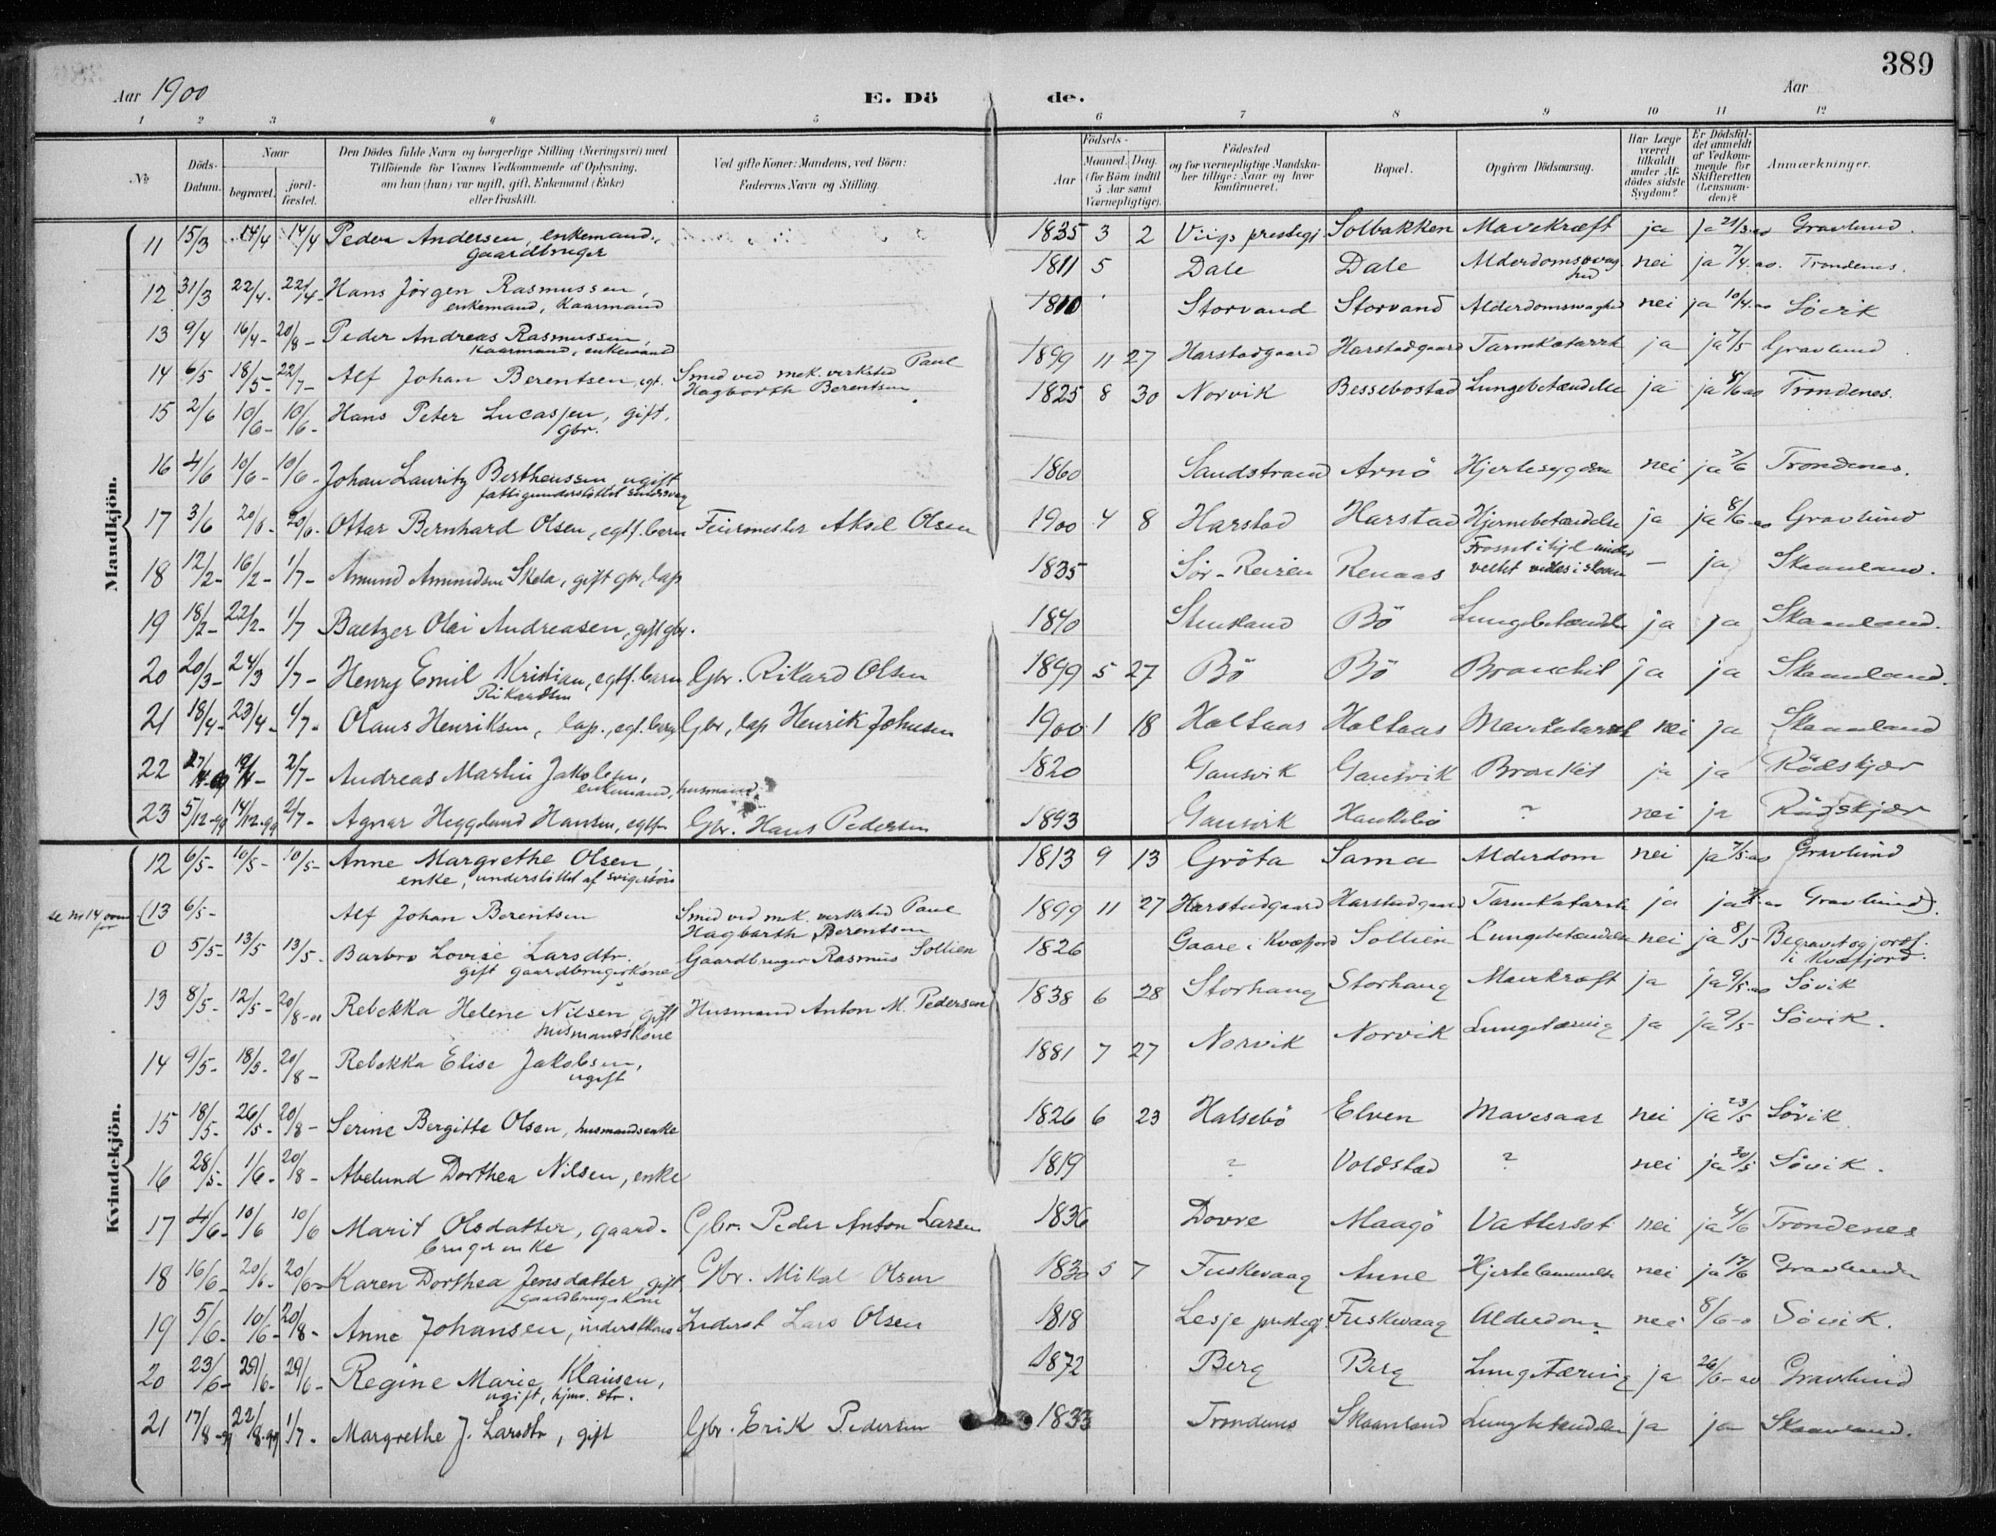 389
Aar 1900
E. Dö de.
Aar
1 2 3 4 5 6 7 8 9 10 11 12
No
Döds-Datum.
Naar begravet. jord-fæstet.
Den Dödes fulde Navn og borgerlige Stilling (Næringsvei) med Tilföiende for Voxnes Vedkommende af Oplysning, om han (hun) var ugift, gift, Enkemand (Enke) eller fraskilt.
Ved gifte Koner: Mandens, ved Börn: Faderens Navn og Stilling.
Födsels- Aar Maaned. Dag. (for Börn indtil 5 Aar samt Værnepligtige).
Födested og for værnepligtige Mandskaber tillige: Naar og hvor konfirmeret.
Bopæl.
Opgiven Dödsaarsag.
Har Læge været tilkaldt under Afdödes sidste Sygdom?
Er Dödsfaldet anmeldt af Vedkommende for Skifteretten (Lensmanden)?
Anmærkninger.
Mandkjön.
11 15/3 14/4 14/4 Peder Andersen, enkemand, gaardbruger 1835 3 2 Solbakken Mavekræft ja ja 21/3 Gravlund.
12 31/3 22/4 22/4 Hans Jörgen Rasmussen, enkemand, Kaarmand 1811 5 Dale Dale Alderdomssvaghed nei ja 7/4 Trondenes.
13 9/4 16/4 20/8 Peder Andreas Rasmussen, Kaarmand, enkemand 1810 Storvand Storvand Alderdomssvaghed nei ja 10/4 Sövik
14 6/5 18/5 22/7 Alf Johan Berentsen, egt. Smed ved mek. verksted Paul Hagbarth Berentsen 1899 11 27 Harstadgaard Harstadgaard Tarmkatarrh ja ja 7/5 Gravlund
15 2/6 10/6 10/6 Hans Peter Lucassen, gift, gbr. 1825 8 30 Norvik Bessebostad Lungebetændelse ja ja 8/6 Trondenes.
16 4/6 10/6 10/6 Johan Lauritz Bertheussen, ugift fattigunderstöttet 1860 Sandstrand Arnö Hjertesygdom nei ja 7/6 Trondenes.
17 3/6 20/6 20/6 Ottar Bernhard Olsen, egtf. barn Feiermester Aksel Olsen 1900 4 8 Harstad Harstad Hjernebetændelse ja ja 8/6 Gravlund
18 12/2 16/2 1/7 Amund Amundsen Skela, gift gbr, lap 1835 Sör-Reisen Renaas Frosset ihjel under veltet i skoven — ja Skaanland.
19 18/2 22/2 1/7 Baltzer Olai Andreasen, gift gbr. 1840 Stensland Bö Lungebetændelse ja ja Skaanland.
20 20/3 24/3 1/7 Henry Emil Kristian Rikardsen, egtf. barn Gbr. Rikard Olsen 1899 5 27 Bö Bö Bronchit ja ja Skaanland.
21 18/4 23/4 1/7 Olaus Henriksen, lap., egt. barn Gbr, lap Henrik Johnsen 1900 1 18 Holtaas Holtaas Mavekatarrh nei ja Skaanland
22 2/7 Andreas Martin Jakobsen, enkemand, husmand 1820 Gausvik Gausvik Bronkit ja ja Rödskjær
23 5/12-99 14/12-99 2/7 Agnar Heggelund Hansen, egtf. Gbr. Hans Pedersen 1893 Gausvik ? nei ja Rödskjær
Kvindekjön.
12 6/5 10/5 10/5 Anne Margrethe Olsen, enke, understöttet af svigersön 1813 9 13 Gröta Sama Alderdom nei ja 7/5 Gravlund
se No 14 ovenfor (13 6/5 Alf Johan Berentsen Smed ved mek. verksted Paul Hagbarth Berentsen 1899 11 27 Harstadgaard Harstadgaard Tarmkatarrh ja ja Gravlund).
0 5/5 13/5 13/5 Barbro Lovise Larsdtr. gift gaardbrugerkone Gaardbruger Rasmus Sollien 1826 Gaare i Kvæfjord Sollien Lungebetændelse nei ja 8/5 Begravet og jordf. i Kvæfjord.
13 8/5 12/5 20/8 Rebekka Helene Nilsen, gift husmandskone Husmand Anton M. Pedersen 1838 6 28 Storhaug Storhaug Mavekræft ja ja 9/5 Sövik
14 9/5 18/5 20/8 Rebekka Elise Jakobsen, ugift 1881 7 27 Norvik Norvik Lungetæring ja ja 9/5 Sövik.
15 18/5 26/5 20/8 Serine Bergitte Olsen, husmandsenke 1826 6 23 Halsebö Elven Mavesaar nei ja 23/5 Sövik
16 28/5 1/6 20/8 Abelund Dorthea Nilsen, enke 1819 ? Voldstad ? nei ja 30/5 Sövik.
17 4/6 10/6 10/6 Marit Olsdatter, gaardbrugerenke Gbr. Peder Anton Larsen 1836 Dovre Maagö Vattersot nei ja 4/6 Trondenes
18 16/6 20/6 20/6 Karen Dorthea Jensdatter, gift gaardbrugerkone Gbr. Mikal Olsen 1830 5 7 Fuskevaag Aune Hjertelammelse nei ja Gravlunden
19 5/6 10/6 20/8 Anne Johansen, inderstkone Inderst Lars Olsen 1818 Lesje prestegj. Fuskevaag Alderdom nei 8/6 Sövik.
20 23/6 29/6 29/6 Regine Marie Klausen, ugift, hjmv. dtr. 1872 Berg Berg Lungetæring ja 26/6 Gravlund
21 17/8-99 22/8-99 1/7 Margrethe J. Larsdtr, gift Gbr. Erik Pedersen 1833 Trondenes Skaanland Lungebetændelse ja ja Skaanland.